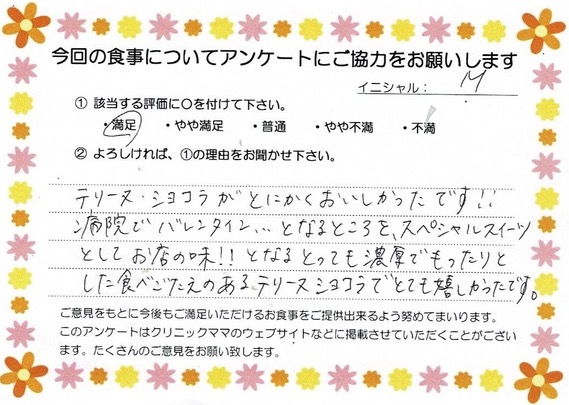 今回の食事についてアンケートにご協力をお願いします
イニシャル： M
① 該当する評価に〇を付けて下さい。
・満足 ・やや満足 ・普通 ・やや不満 ・不満
② よろしければ、①の理由をお聞かせ下さい。
テリーヌ・ショコラがとにかくおいしかったです!!
病院でバレンタイン… となるところを、スペシャルスイーツ
としてお店の味!! となるとっても濃厚でもったりと
した食べごたえのあるテリーヌショコラでとても嬉しかったです。
ご意見をもとに今後もご満足いただけるお食事をご提供出来るよう努めてまいります。
このアンケートはクリニックママのウェブサイトなどに掲載させていただくことがござい
ます。たくさんのご意見をお願い致します。